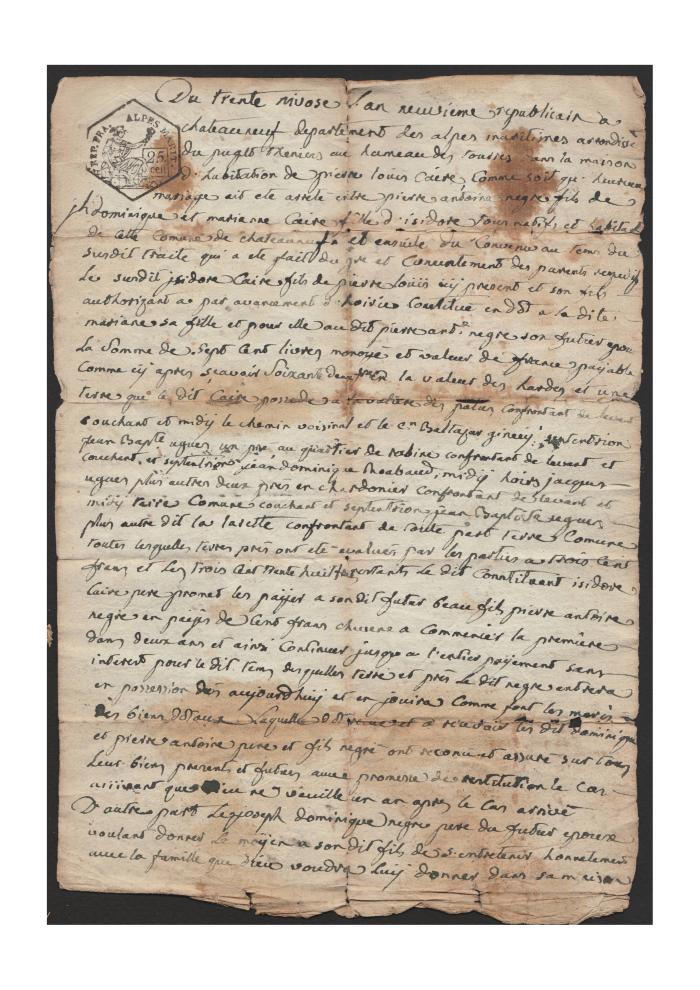 REP. FRA. ALPES MARIT.
25 cen
Du trente nivose l'an neuvieme republicain a
chateauneuf departement des alpes maritimes arrondis
du puget theniers au hameau des tourres dans la maison
d'habitation de pierre louis Caire, Comme soit que heureux
mariage ait ete arreté entre pierre antoine negre fils de
jh dominique et marianne Caire fille d'isidore tous natifs et habitans
de cette Comune de chateauneuf a et ensuite du Convenu au tems du
susdit traité qui a ete fait du gre et Consentement des parents respectifs
Le susdit jsidore Caire fils de pierre Louis icy present et son fils
authorizant a par avancement d'hoirie Constitué en dot a la dite
mariane sa fille et pour elle au dit pierre ant.e negre son futur epou
La Somme de Sept Cent livres monoye et valeur de france payable
Comme cy apres sçavoir Soixante deux en la valeur des hardes et une
terre que le dit Caire possede a confrontant de levant
couchant et midy le chemin voisinal et le C.n Baltasar septentrion
jean Bapte ugues, un pre au quartier de confrontant de levant et
couchant, et septentrion jean dominique Thoabaud, midy hoirs jacques
ugues plus autres deux prés en chardonier Confrontant de levant et
midy terre Comune couchant et septentrion jean Baptiste ugues
plus autre dit la confrontant de toute part terre Comune
toutes lesquelles terres prés ont ete evalués par les parties a trois Cent
frans et Les trois Cent trente huit restants Le dit Constituant isidore
Caire pere promet les païjer a son dit futur beau fils pierre antoine
negre en paijes de Cent frans chacune a Commencer la premiere
dans deux ans et ainsi Continuer jusqu'a l'entier païjement sans
interest pour le dit tems desquelles terre et prés Le dit negre entrera
en possession des aujourd'huij et en jouira Comme font les maris
des biens dotaux Laquelle dot et a recevoir les dit Dominique
et pierre antoine pere et fils negre ont reconu et assure sur tous
Leur biens presents et futurs avec promesse de restitution le Cas
arrivant que Dieu ne veuille un an apres le Cas arrivé
D'autre part Le joseph dominique negre pere du futur epoux
voulant donner Le moijen a son dit fils de S'entretenir honnetement
avec la famille que Dieu voudra Luij donner dans sa maison